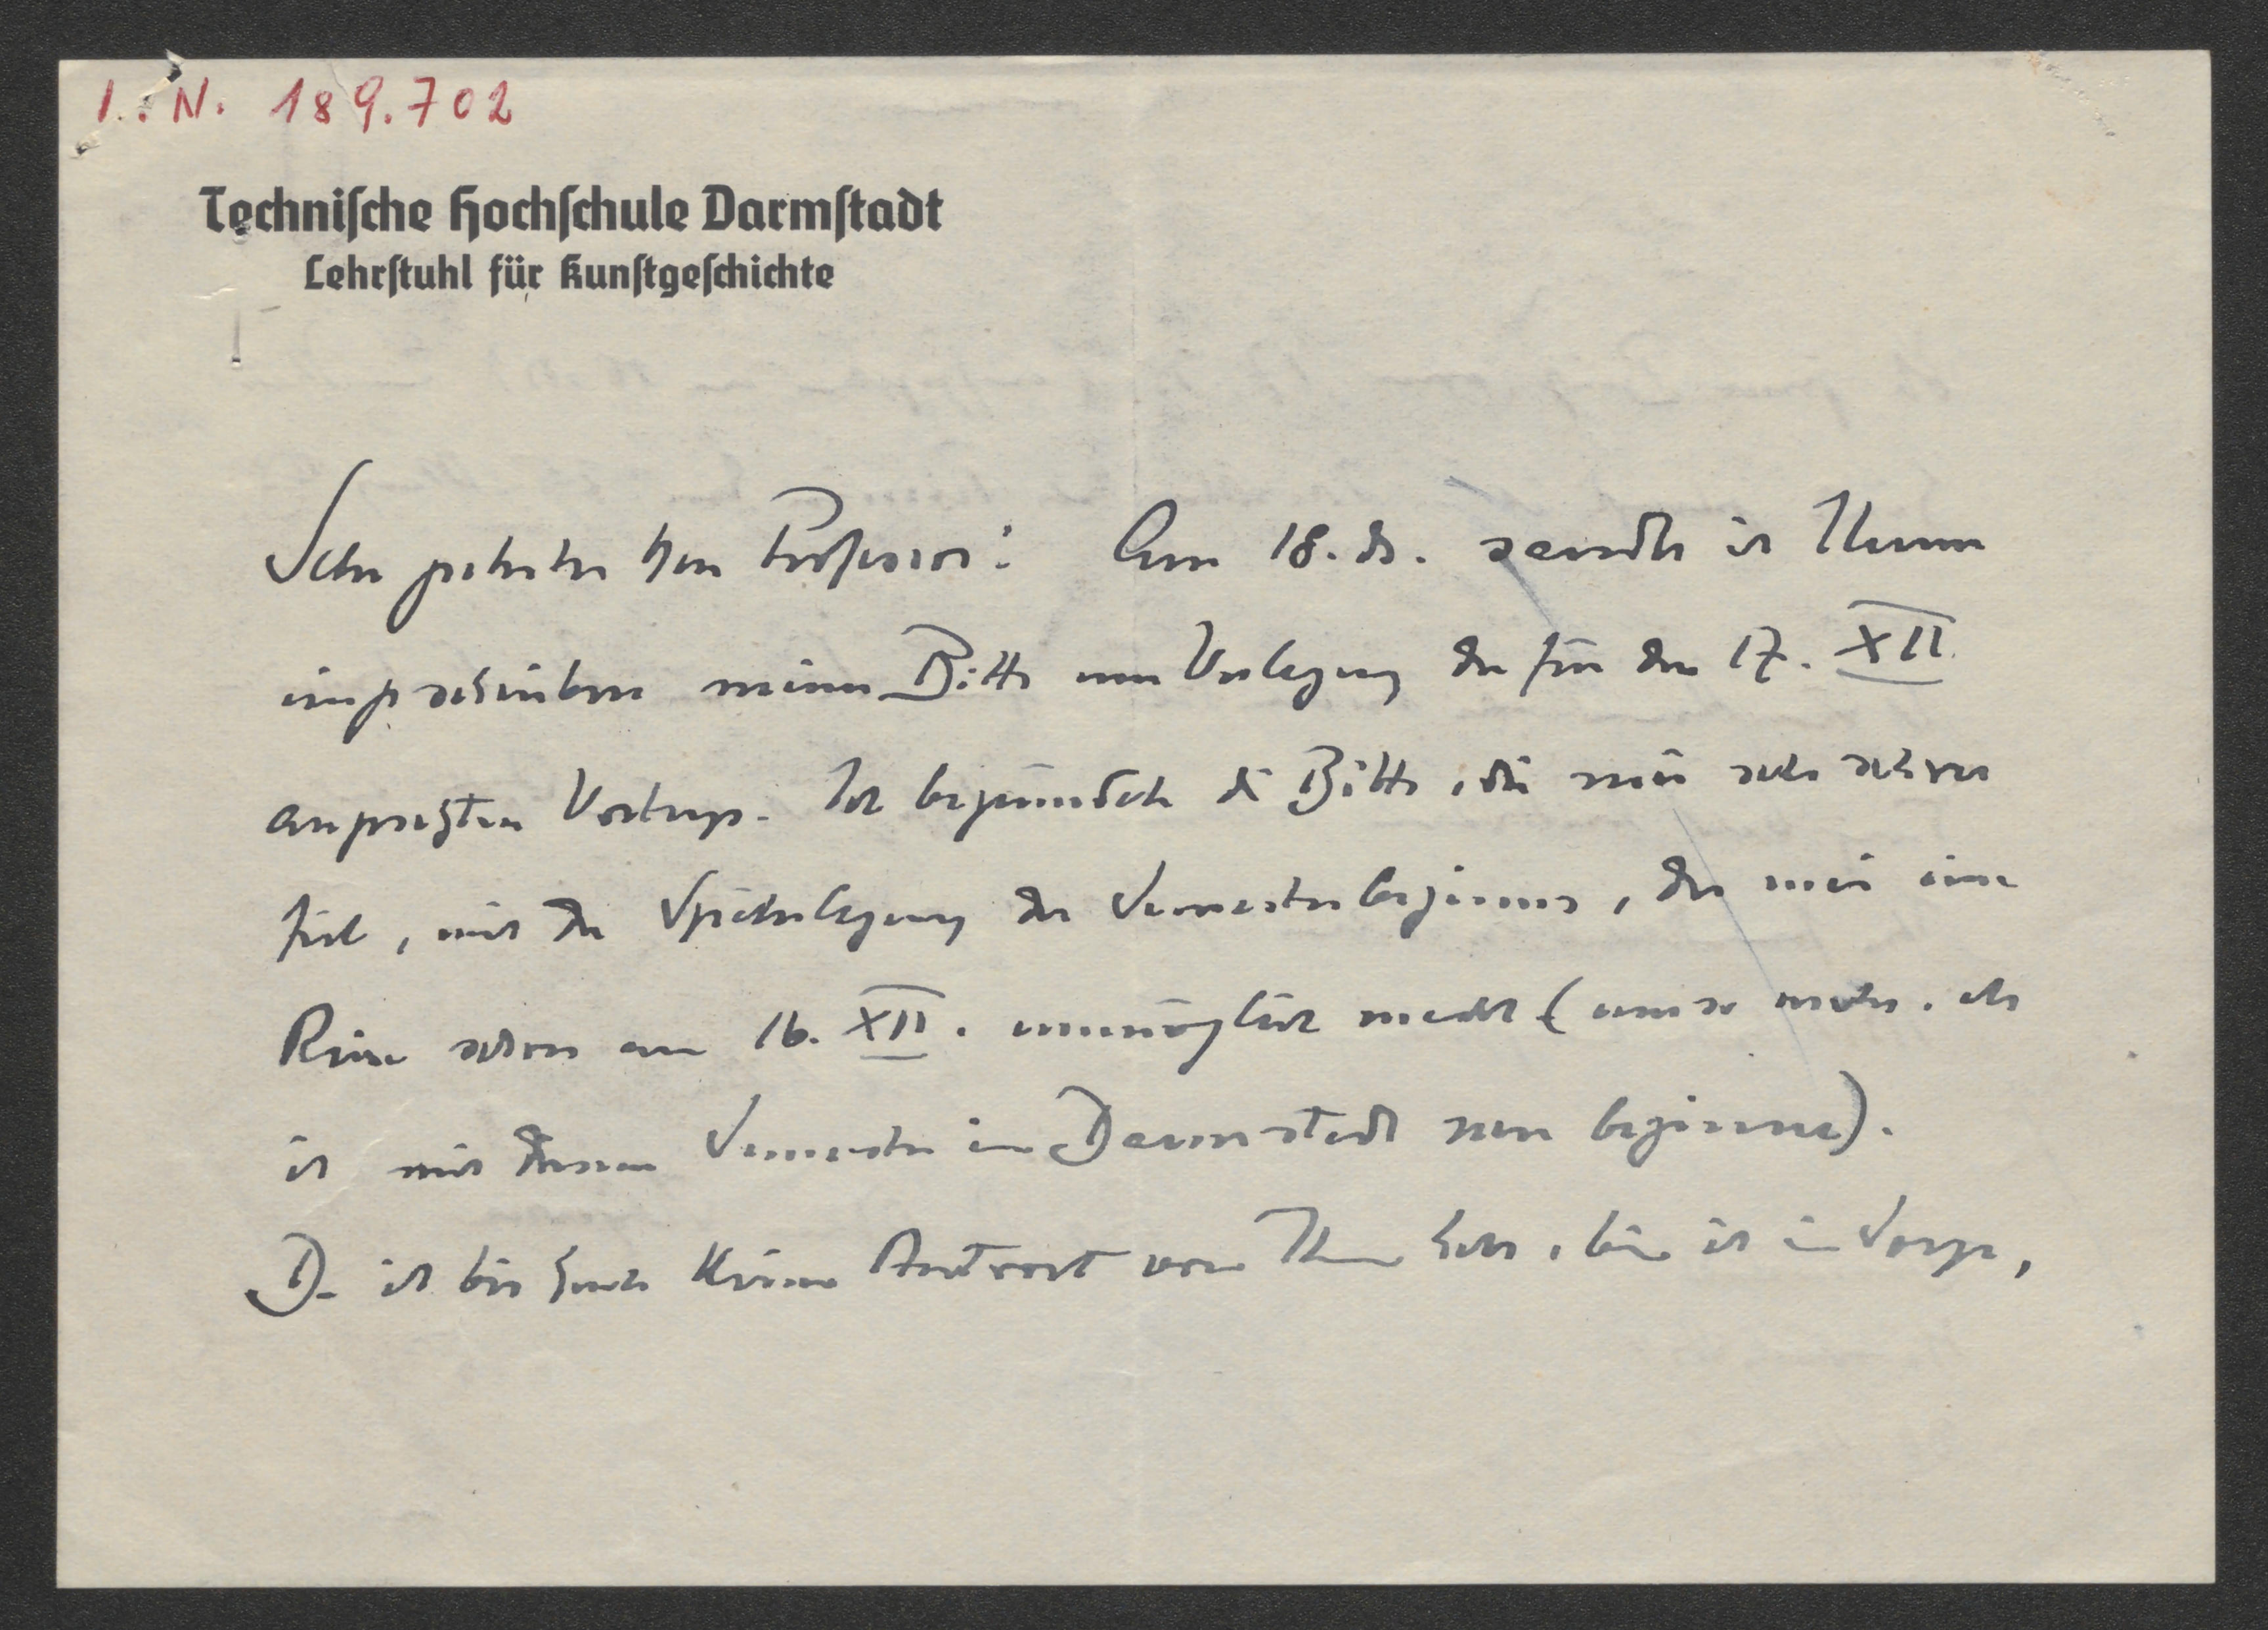 I. N. 189.702
Technische Hochschule Darmstadt
Lehrstuhl für Kunstgeschichte
Sehr geehrter Herr Professor! Am 18. ds. sandte ich Ihnen
eingeschrieben meine Bitte um Verlegung des für den 17. XII
angesetzten Vortrags. Ich begründete die Bitte, die mir sehr schwer
fiel, mit der Späterlegung des Semesterbeginns, der mir eine
Reise schon am 16. XII. unmöglich macht (umso mehr, als
ich mit diesem Semester in Darmstadt neu beginne).
Da ich bis heute keine Antwort von Ihnen habe, bin ich in Sorge,